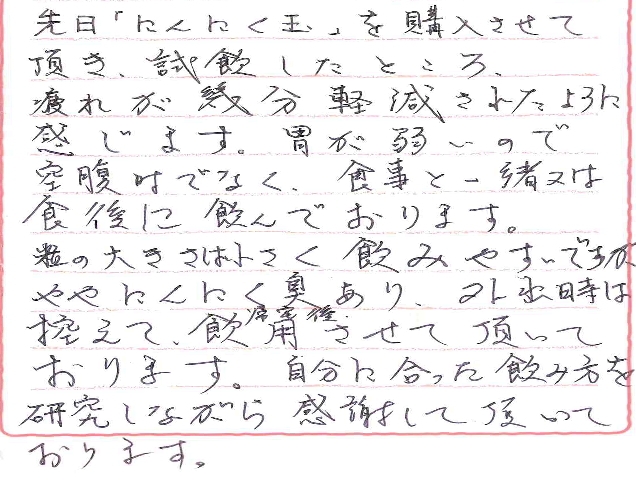 先日「にんにく玉」を購入させて
頂き、試飲したところ、
疲れが幾分軽減されたように
感じます。胃が弱いので
空腹時でなく、食事と一緒又は
食後に飲んでおります。
粒の大きさは小さく飲みやすいですが
ややにんにく臭あり、外出時は
控えて、飲用させて頂いて
おります。自分に合った飲み方を
研究しながら感謝して頂いて
おります。